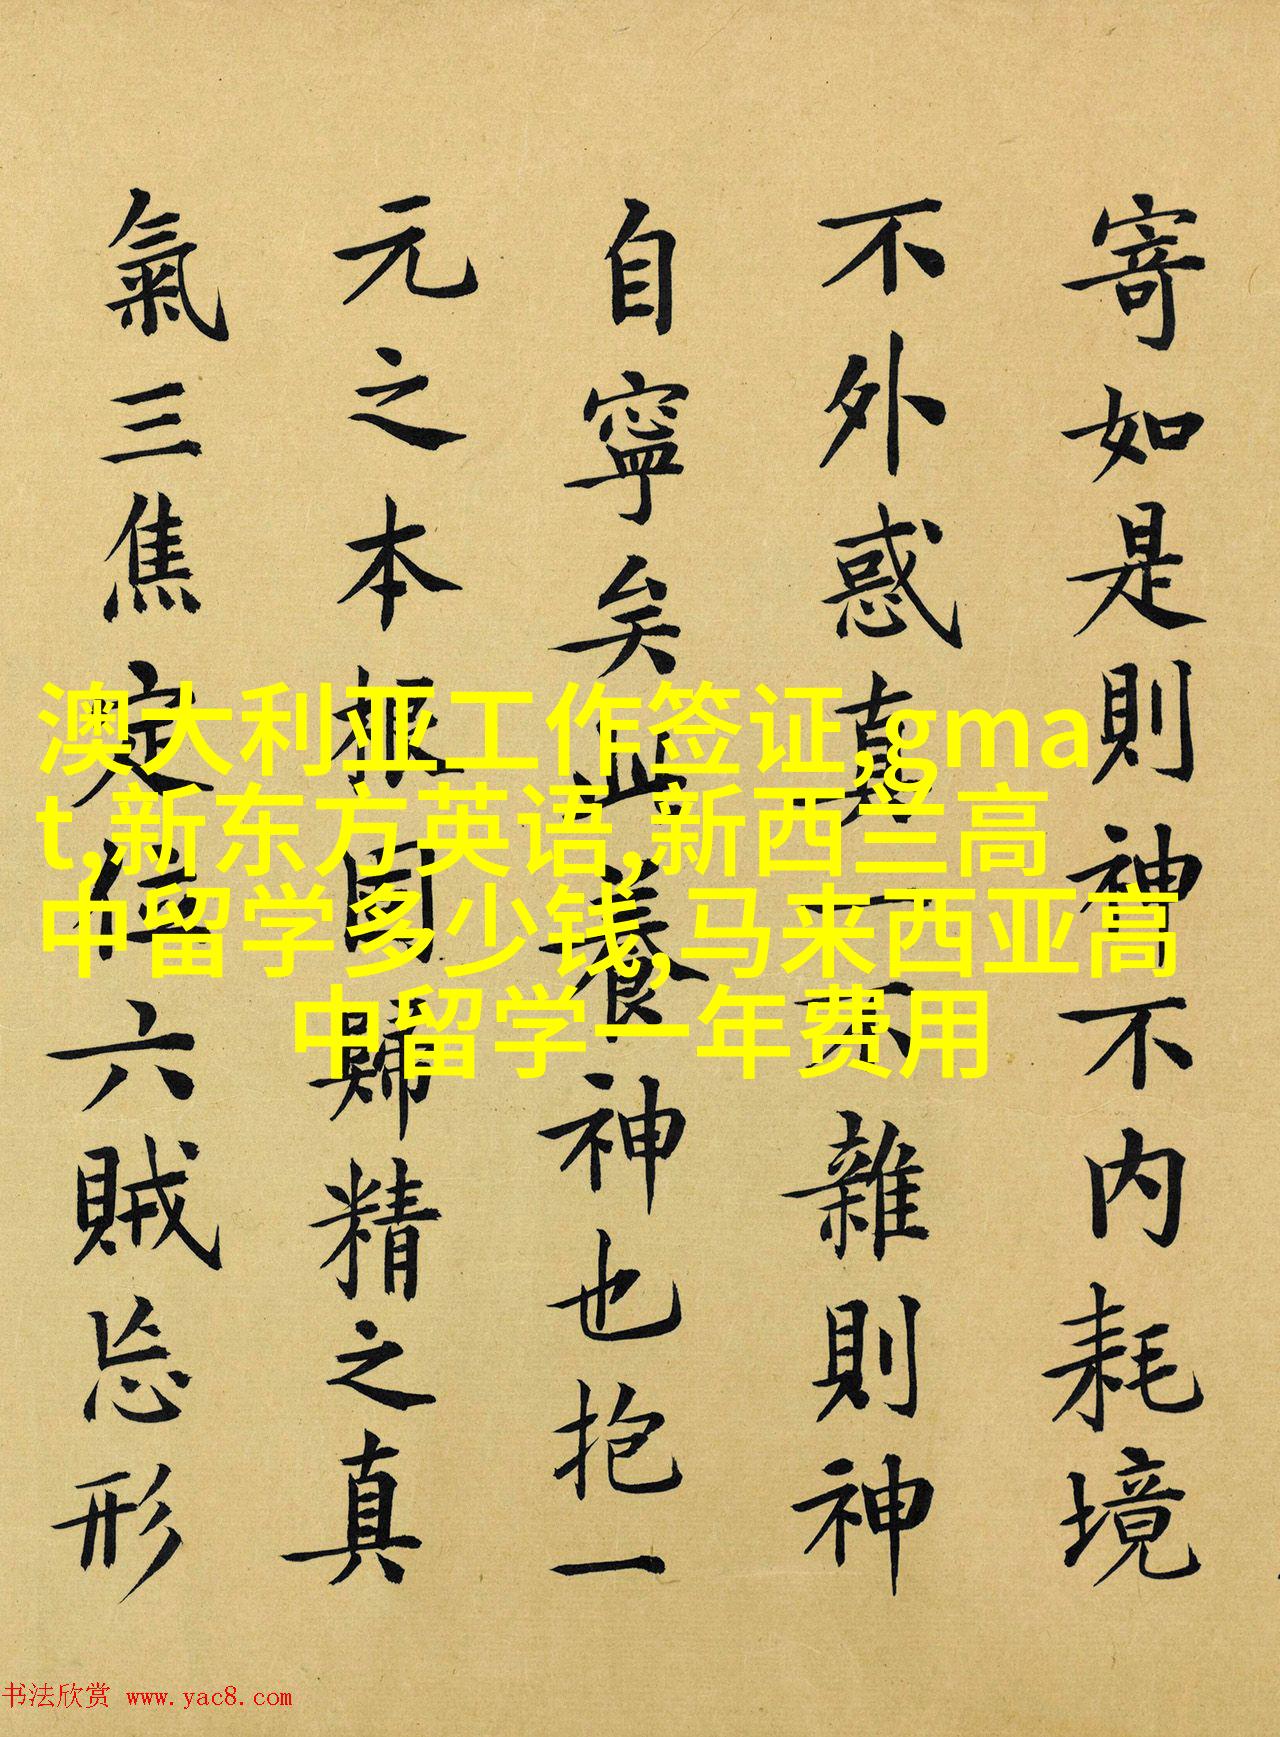 寄如是則神不内耗境
不外惑真一不雜則神
自寧矣此養神也抱一
元之本根固歸精之真
氣三焦定位六賊忘形
澳大利亚工作签证,gma
t,新东方英语,新西兰高
中留学多少钱,马来西亚高
中留学一年费用
书法欣赏 www.yac8.com